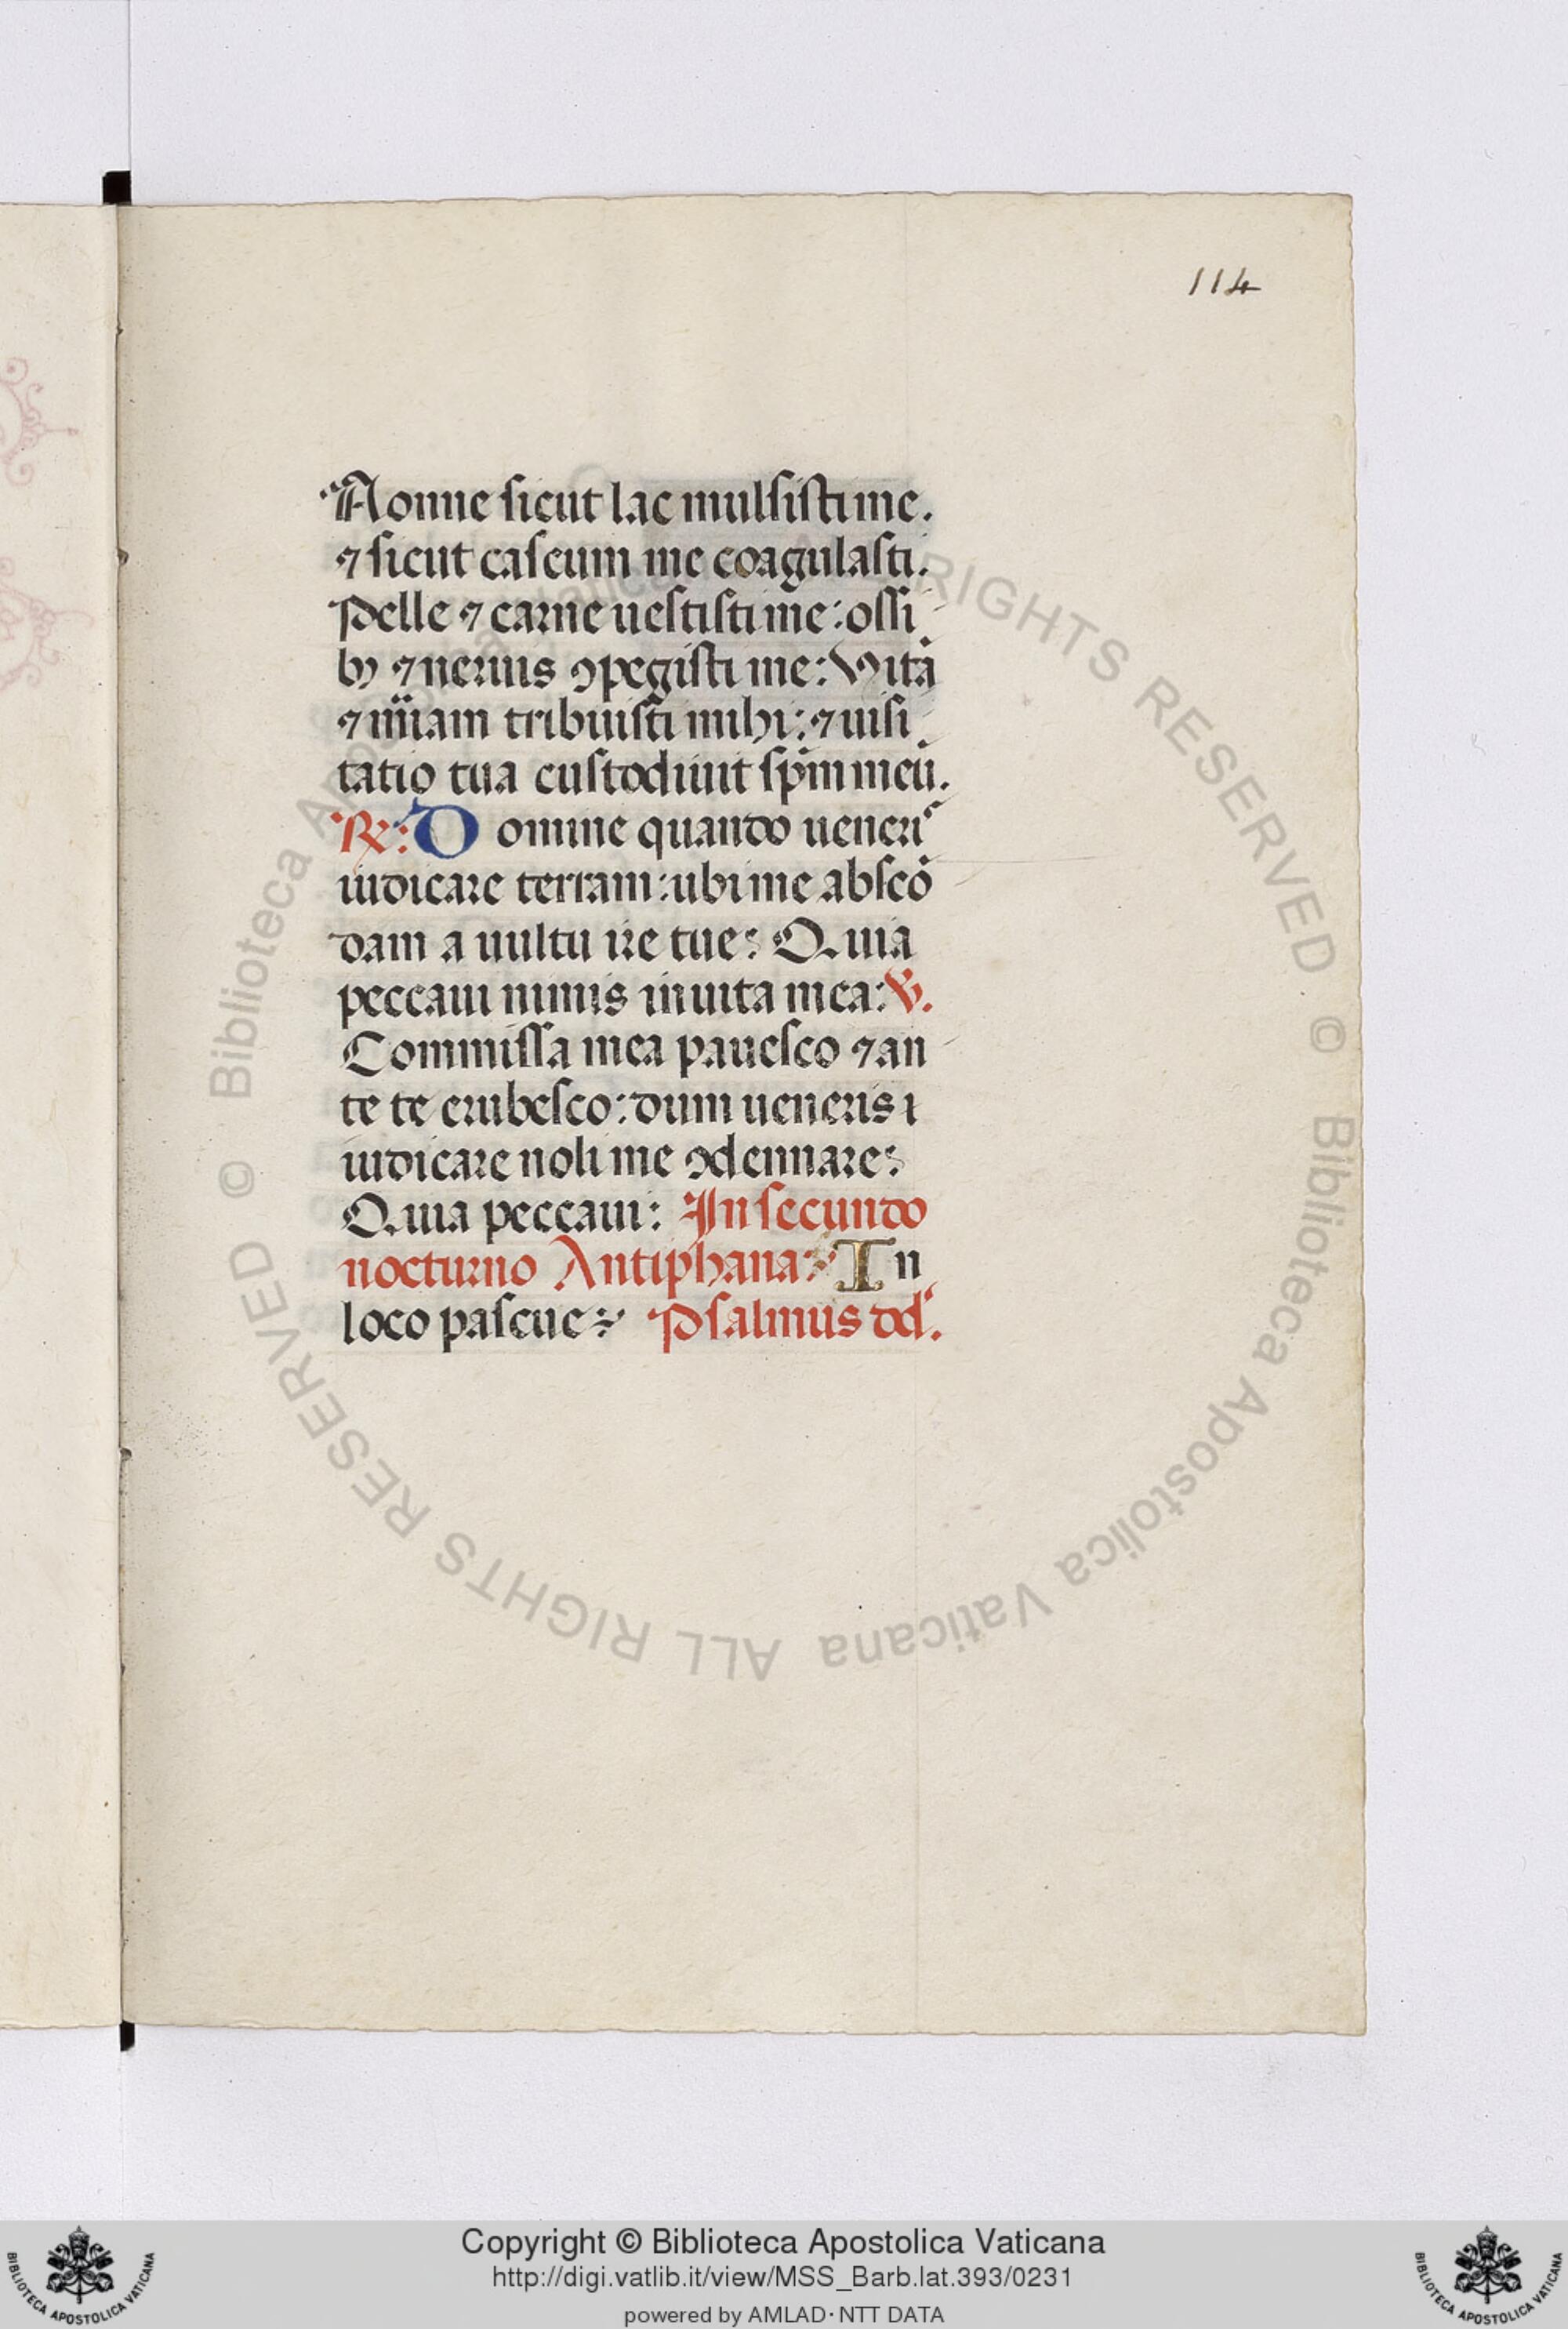 114
Nonne sicut lac mulsisti me.
⁊ sicut caseum me coagulasti.
Pelle ⁊ carne uestisti me: ossi
bꝫ ⁊ neruis ꝯpegisti me: Vitā
⁊ mi͞am tribuisti mihi: ⁊ uisi
tatio tua custodiuit sp̄m meū.
℟: Domine quando ueneris
iudicare terram: ubi me abscō
dam a uultu ire tue: Quia
peccaui nimis in uita mea: ℣.
Commissa mea pauesco ⁊ an
te te erubesco: dum ueneris i
iudicare noli me ꝯdennare:
Quia peccaui: In secundo
nocturno Antiphana: In
loco pascue: Psalmus dd̛.
© Biblioteca Apostolica Vaticana ALL RIGHTS RESERVED
© Biblioteca Apostolica Vaticana ALL RIGHTS RESERVED
Copyright © Biblioteca Apostolica Vaticana
http://digi.vatlib.it/view/MSS_Barb.lat.393/0231
powered by AMLAD·NTT DATA
BIBLIOTECA APOSTOLICA VATICANA
BIBLIOTECA APOSTOLICA VATICANA